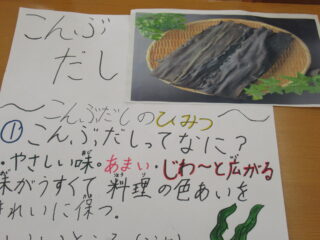 こんぶ
だし
〜こんぶだしのひみつ〜
①こんぶだしってなに?
・やさしい味。あまい・じわ〜と広がる
味がうすくて、料理の色あいを
きれいに保つ。